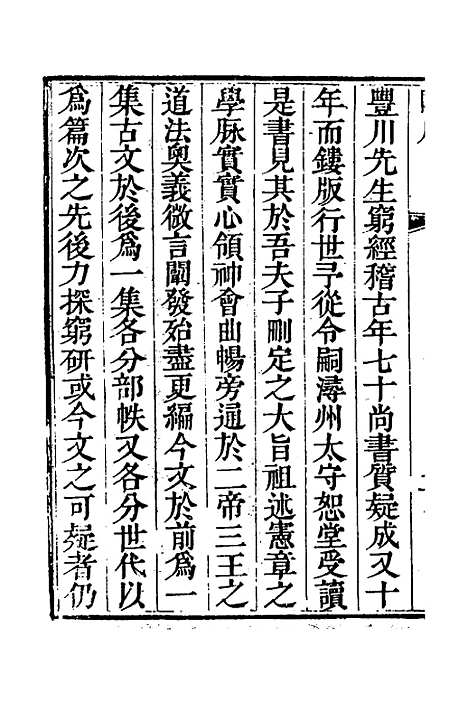 豐川先生窮經稽古年七十尚書質疑成又十
年而鏤版行世予從令嗣潯州太守恕堂受讀
是書見其於吾夫子刪定之大旨祖述憲章之
學脉實實心領神會曲暢旁通於二帝三王之
道法奧義微言闡發殆盡更編今文於前爲一
集古文於後爲一集各分部帙又各分世代以
爲篇次之先後力探窮研或今文之可疑者仍